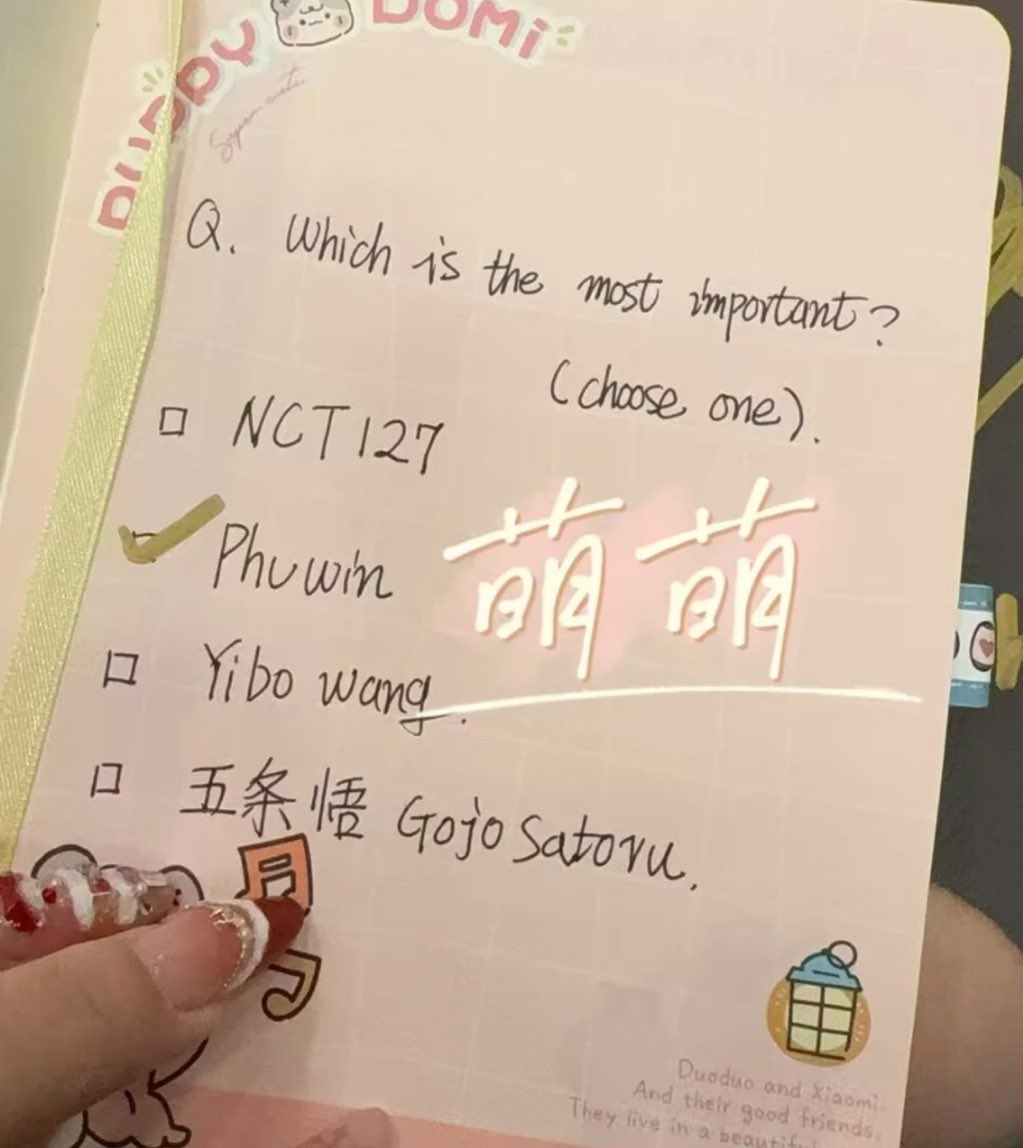 PUPPY DOMi
Q. Which is the most important?
(choose one).
NCT 127
Phuwin
萌萌
Yibo wang.
五条悟 Gojo Satoru.
Duoduo and Xiaomi.
And their good friends,
They live in a